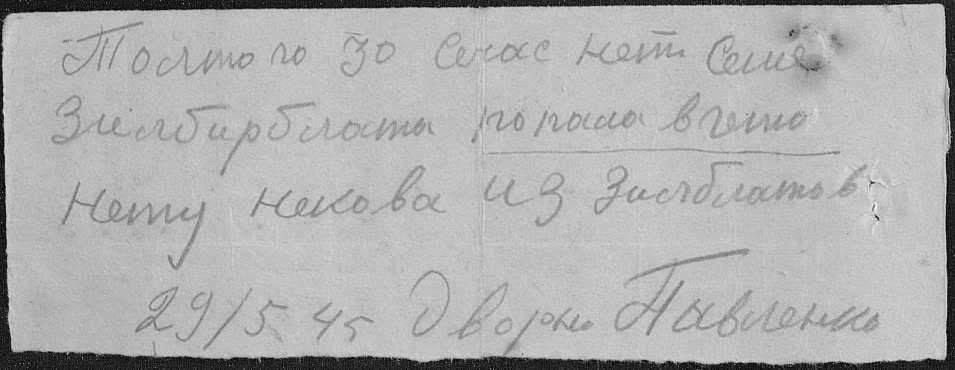 Толтого 30 Сечас нет Семе
Зилбирблаты попала в гето
нету некова из Зилблатов
29/5 45 Дворн Павленко